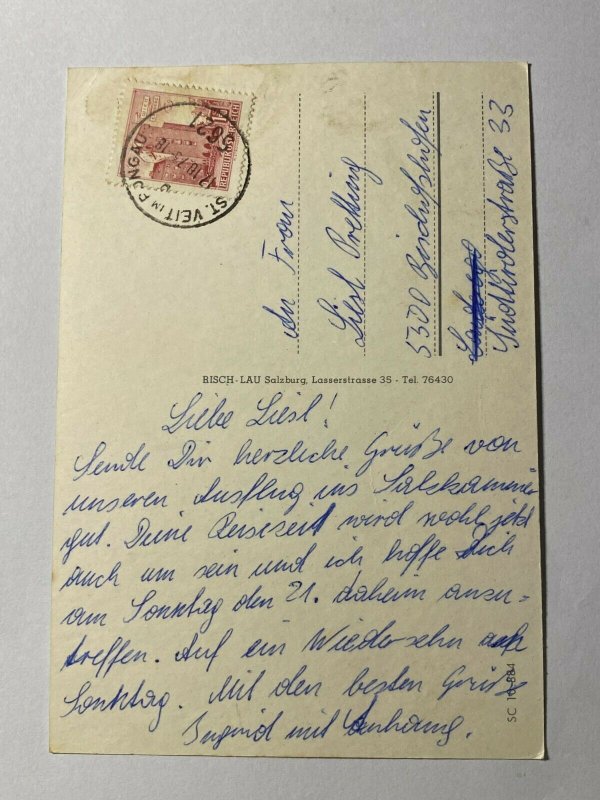 REPUBLIK ÖSTERREICH
5621
ST. VEIT IM PONGAU
An Frau
Liesl
5500 Bischofshofen
Südtirolerstraße 33
RISCH-LAU Salzburg, Lasserstrasse 35 - Tel. 76430
Liebe Liesl!
Sende Dir herzliche Grüße von
unseren Ausflug ins Salzkammer
gut. Deine Reisezeit wird wohl jetzt
auch um sein und ich hoffe Dich
am Sonntag den 21. daheim anzu-
treffen. Auf ein Wiedersehn am
Sonntag. Mit den besten Grüße
Ingrid mit Anhang.
SC 10 884